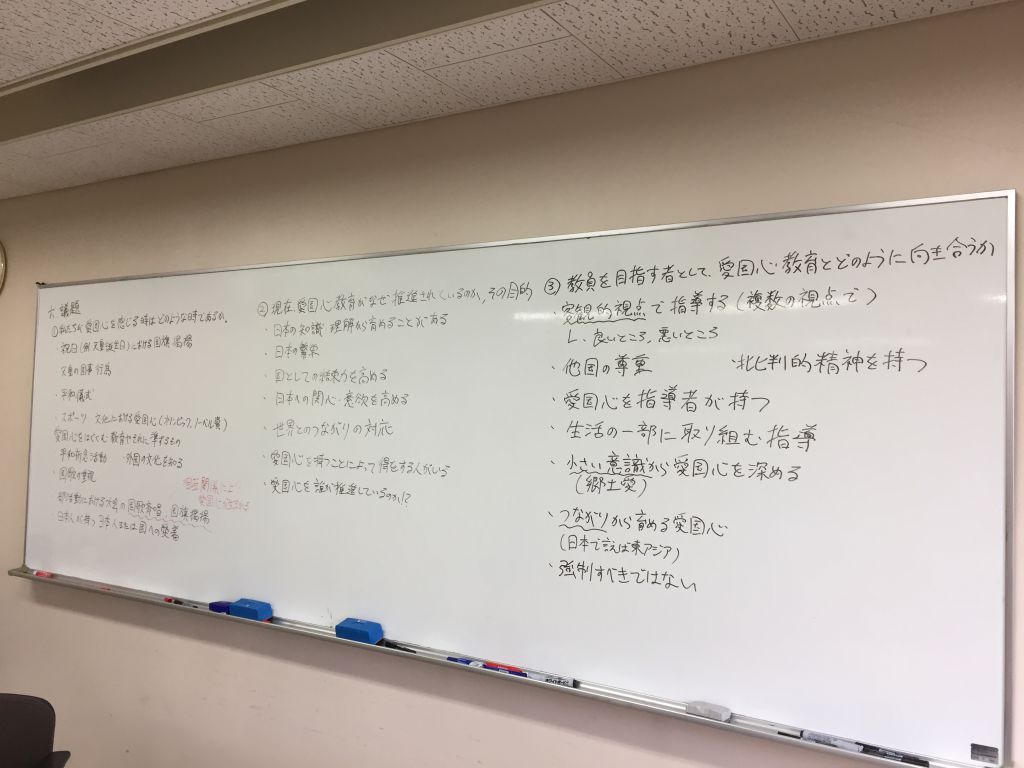 六 議題
①私たちが愛国心を感じる時はどのような時であるか。
・祝日(例 天皇誕生日)における国旗掲揚
・天皇の国事行為
・平和儀式
・スポーツ 文化における愛国心(オリンピック、ノーベル賞)
愛国心をはぐくむ教育やそれに準ずるもの
平和祈念活動 ・外国の文化を知る
・国歌の
における大会の国歌斉唱 国旗掲揚
・日本人が持つ日本人または国への愛着
②現在、愛国心教育がなぜ推進されているのか、その目的
・日本の知識 理解から育めることがある
・日本の繁栄
・国としての結束力を高める
・日本への関心・意欲を高める
・世界とのつながりの対応
・愛国心を持つことによって得をする人がいる
・愛国心を誰が推進しているのか!?
③ 教員を目指す者として、愛国心教育とどのように向き合うか
・客観的視点で指導する(複数の視点で)
し、良いところ、悪いところ
・他国の尊重 ・批判的精神を持つ
・愛国心を指導者が持つ
・生活の一部に取り組む指導
・小さい意識から愛国心を深める
(郷土愛)
・つながりから育める愛国心
(日本で言えば東アジア)
・強制すべきではない